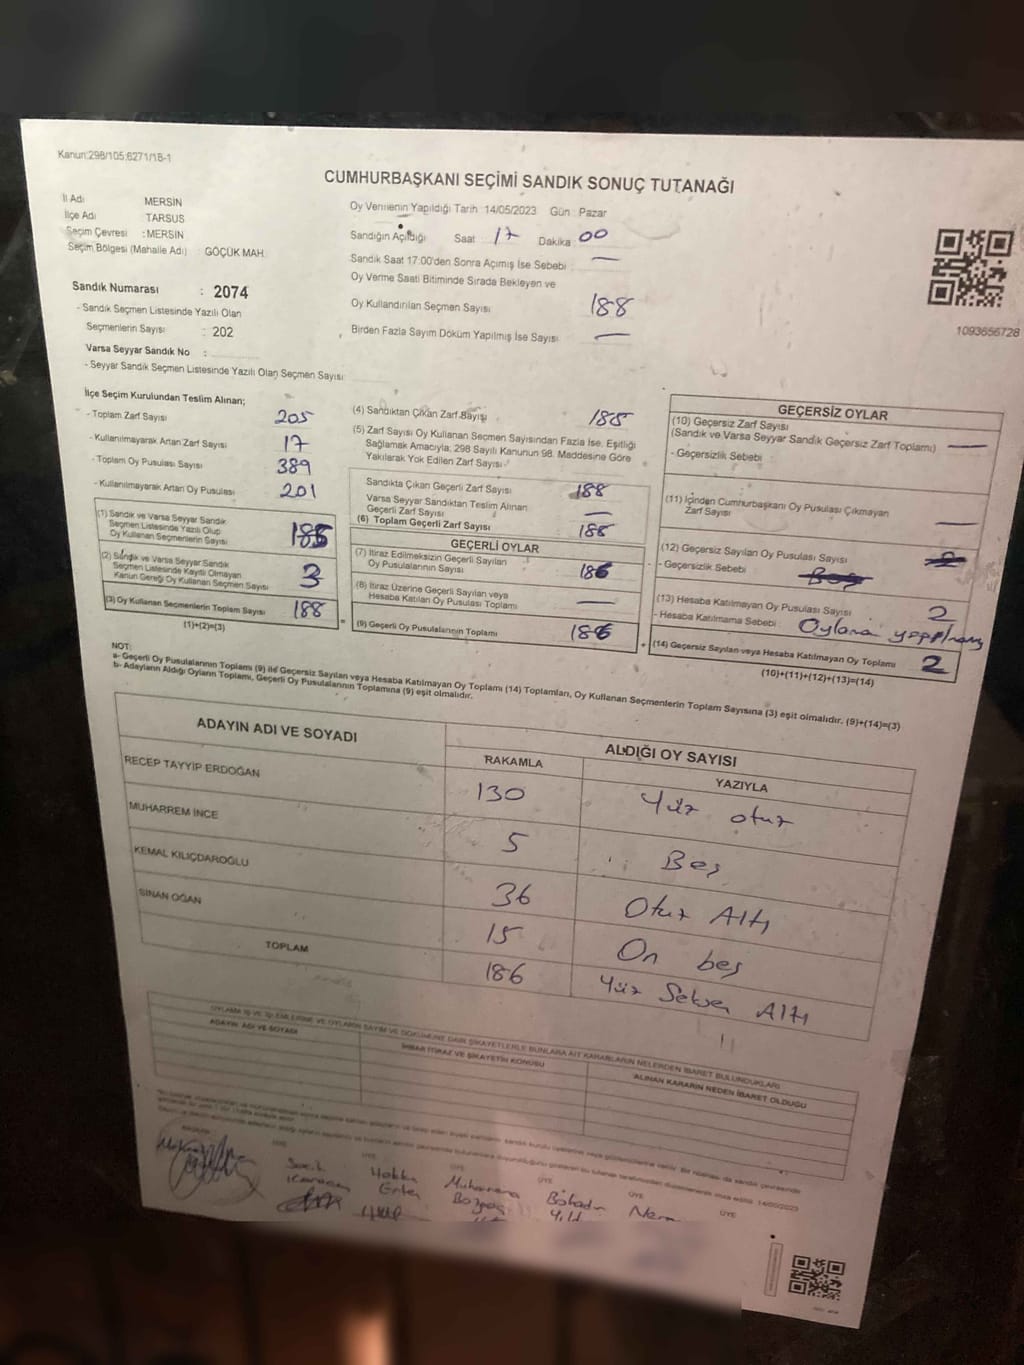 Kanun:298/105;6271/18-1
CUMHURBAŞKANI SEÇİMİ SANDIK SONUÇ TUTANAĞI
İl Adı MERSİN
İlçe Adı TARSUS
Seçim Çevresi : MERSİN
Seçim Bölgesi (Mahalle Adı) : GÖÇÜK MAH.
Oy Vermenin Yapıldığı Tarih 14/05/2023 Gün : Pazar
Sandığın Açıldığı Saat : 17 Dakika : 00
Sandık Saat 17:00'den Sonra Açımış İse Sebebi : —
Oy Verme Saati Bitiminde Sırada Bekleyen ve
Oy Kullandırılan Seçmen Sayısı 188
Birden Fazla Sayım Döküm Yapılmış İse Sayısı —
1093656728
Sandık Numarası : 2074
- Sandık Seçmen Listesinde Yazılı Olan
Seçmenlerin Sayısı : 202
Varsa Seyyar Sandık No :
- Seyyar Sandık Seçmen Listesinde Yazılı Olan Seçmen Sayısı:
İlçe Seçim Kurulundan Teslim Alınan;
- Toplam Zarf Sayısı 205
- Kullanılmayarak Artan Zarf Sayısı 17
- Toplam Oy Pusulası Sayısı 389
- Kullanılmayarak Artan Oy Pusulası 201
(1) Sandık ve Varsa Seyyar Sandık
Seçmen Listesinde Yazılı Olup
Oy Kullanan Seçmenlerin Sayısı 185
(2) Sandık ve Varsa Seyyar Sandık
Seçmen Listesinde Kayıtlı Olmayan
Kanun Gereği Oy Kullanan Seçmen Sayısı 3
(3) Oy Kullanan Seçmenlerin Toplam Sayısı 188
(1)+(2)=(3)
(4) Sandıktan Çıkan Zarf Sayısı 188
(5) Zarf Sayısı Oy Kullanan Seçmen Sayısından Fazla İse, Eşitliği
Sağlamak Amacıyla, 298 Sayılı Kanunun 98. Maddesine Göre
Yakılarak Yok Edilen Zarf Sayısı
Sandıkta Çıkan Geçerli Zarf Sayısı 188
Varsa Seyyar Sandıktan Teslim Alınan
Geçerli Zarf Sayısı —
(6) Toplam Geçerli Zarf Sayısı 188
GEÇERLİ OYLAR
(7) İtiraz Edilmeksizin Geçerli Sayılan
Oy Pusulalarının Sayısı 186
(8) İtiraz Üzerine Geçerli Sayılan veya
Hesaba Katılan Oy Pusulası Toplamı —
(9) Geçerli Oy Pusulalarının Toplamı 186
GEÇERSİZ OYLAR
(10) Geçersiz Zarf Sayısı
(Sandık ve Varsa Seyyar Sandık Geçersiz Zarf Toplamı) —
- Geçersizlik Sebebi :
(11) İçinden Cumhurbaşkanı Oy Pusulası Çıkmayan
Zarf Sayısı —
(12) Geçersiz Sayılan Oy Pusulası Sayısı
- Geçersizlik Sebebi : Boş
(13) Hesaba Katılmayan Oy Pusulası Sayısı 2
- Hesaba Katılmama Sebebi : Oylama
(14) Geçersiz Sayılan veya Hesaba Katılmayan Oy Toplamı 2
(10)+(11)+(12)+(13)=(14)
NOT:
a- Geçerli Oy Pusulalarının Toplamı (9) ile Geçersiz Sayılan veya Hesaba Katılmayan Oy Toplamı (14) Toplamları, Oy Kullanan Seçmenlerin Toplam Sayısına (3) eşit olmalıdır. (9)+(14)=(3)
b- Adayların Aldığı Oyların Toplamı, Geçerli Oy Pusulalarının Toplamına (9) eşit olmalıdır.
ADAYIN ADI VE SOYADI ALDIĞI OY SAYISI
RAKAMLA YAZIYLA
RECEP TAYYİP ERDOĞAN 130 Yüz otuz
MUHARREM İNCE 5 Beş
KEMAL KILIÇDAROĞLU 36 Otuz Altı
SİNAN OĞAN 15 On beş
TOPLAM 186 Yüz Seksen Altı
OYLAMA İŞ VE İŞLEMLERİNE VE OYLARIN SAYIM VE DÖKÜMÜNE DAİR ŞİKAYETLERLE BUNLARA AİT KARARLARIN NELERDEN İBARET BULUNDUKLARI
ADAYIN ADI VE SOYADI İHBAR İTİRAZ VE ŞİKAYETİN KONUSU ALINAN KARARIN NEDEN İBARET OLDUĞU
14/05/2023
BAŞKAN ÜYE ÜYE ÜYE ÜYE ÜYE ÜYE
Hakkı Muharrem